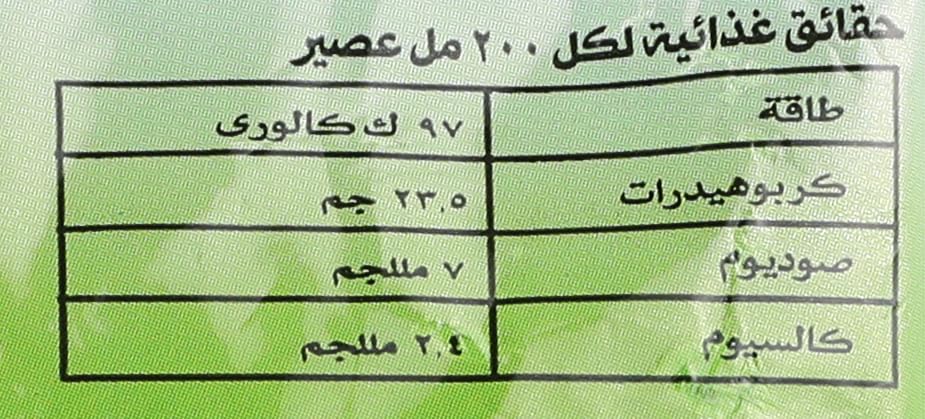 حقائق غذائية لكل ٢٠٠ مل عصير
طاقة ٩٧ ك كالورى
كربوهيدرات ٢٣,٥ جم
صوديوم ٧ مللجم
كالسيوم ٢,٤ مللجم